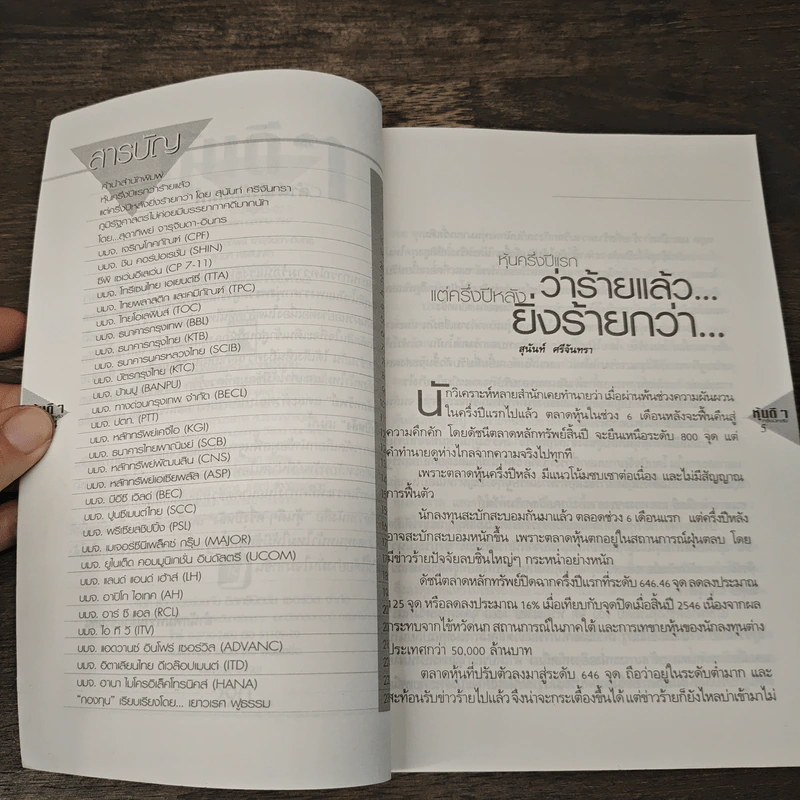 สารบัญ
คำนำสำนักพิมพ์
หุ้นครึ่งปีแรกว่าร้ายแล้ว
แต่ครึ่งปีหลังยิ่งร้ายกว่า โดย สุนันท์ ศรีจันทรา
ภูมิรัฐศาสตร์ไม่ค่อยมีบรรยากาศดีมากนัก
โดย...สุดาทิพย์ จารุจินดา-อินทร
บมจ. เจริญโภคภัณฑ์ (CPF)
บมจ. ชิน คอร์ปอเรชั่น (SHIN)
ซีพี เซเว่นอีเลฟเว่น (CP 7-11)
บมจ. โทรีเซนไทย เอเยนต์ซี่ (TTA)
บมจ. ไทยพลาสติก และเคมีภัณฑ์ (TPC)
บมจ. ไทยโอเลฟินส์ (TOC)
บมจ. ธนาคารกรุงเทพ (BBL)
บมจ. ธนาคารกรุงไทย (KTB)
บมจ. ธนาคารนครหลวงไทย (SCIB)
บมจ. บัตรกรุงไทย (KTC)
บมจ. บ้านปู (BANPU)
บมจ. ทางด่วนกรุงเทพ จำกัด (BECL)
บมจ. ปตท. (PTT)
บมจ. หลักทรัพย์เคจีไอ (KGI)
บมจ. ธนาคารไทยพาณิชย์ (SCB)
บมจ. หลักทรัพย์พัฒนสิน (CNS)
บมจ. หลักทรัพย์เอเชียพลัส (ASP)
บมจ. บีอีซี เวิลด์ (BEC)
บมจ. ปูนซีเมนต์ไทย (SCC)
บมจ. พรีเชียสชิปปิ้ง (PSL)
บมจ. เมเจอร์ซีนีเพล็คซ์ กรุ๊ป (MAJOR)
บมจ. ยูไนเต็ด คอมมูนิเกชั่น อินดัสตรี (UCOM)
บมจ. แลนด์ แอนด์ เฮ้าส์ (LH)
บมจ. อาปิโก ไฮเทค (AH)
บมจ. อาร์ ซี แอล (RCL)
บมจ. ไอ ที วี (ITV)
บมจ. แอดวานซ์ อินโฟร์ เซอร์วิส (ADVANC)
บมจ. อิตาเลียนไทย ดีเวล๊อปเมนต์ (ITD)
บมจ. ฮานา ไมโครอิเล็คโทรนิคส์ (HANA)
"กองทุน" เรียบเรียงโดย... เยาวเรศ ฟูธรรม
หุ้นครึ่งปีแรก
ว่าร้ายแล้ว...
แต่ครึ่งปีหลัง
ยิ่งร้ายกว่า...
สุนันท์ ศรีจันทรา
นักวิเคราะห์หลายสำนักเคยทำนายว่า เมื่อผ่านพ้นช่วงความผันผวน
ในครึ่งปีแรกไปแล้ว ตลาดหุ้นในช่วง 6 เดือนหลังจะฟื้นคืนสู่
ความคึกคัก โดยดัชนีตลาดหลักทรัพย์สิ้นปี จะยืนเหนือระดับ 800 จุด แต่
คำทำนายดูห่างไกลจากความจริงไปทุกที
เพราะตลาดหุ้นครึ่งปีหลัง มีแนวโน้มซบเซาต่อเนื่อง และไม่มีสัญญาณ
การฟื้นตัว
นักลงทุนสะบักสะบอมกันมาแล้ว ตลอดช่วง 6 เดือนแรก แต่ครึ่งปีหลัง
อาจสะบักสะบอมหนักขึ้น เพราะตลาดหุ้นตกอยู่ในสถานการณ์ฝุ่นตลบ โดย
มีข่าวร้ายปัจจัยลบชิ้นใหญ่ๆ กระหน่ำอย่างหนัก
ดัชนีตลาดหลักทรัพย์ปิดฉากครึ่งปีแรกที่ระดับ 646.46 จุด ลดลงประมาณ
125 จุด หรือลดลงประมาณ 16% เมื่อเทียบกับจุดปิดเมื่อสิ้นปี 2546 เนื่องจากผล
กระทบจากไข้หวัดนก สถานการณ์ในภาคใต้ และการเทขายหุ้นของนักลงทุนต่าง
ประเทศกว่า 50,000 ล้านบาท
ตลาดหุ้นที่ปรับตัวลงมาสู่ระดับ 646 จุด ถือว่าอยู่ในระดับต่ำมาก และ
สะท้อนรับข่าวร้ายไปแล้ว จึงน่าจะกระเตื้องขึ้นได้ แต่ข่าวร้ายก็ยังไหลบ่าเข้ามาไม่
หุ้นดี ๆ
5